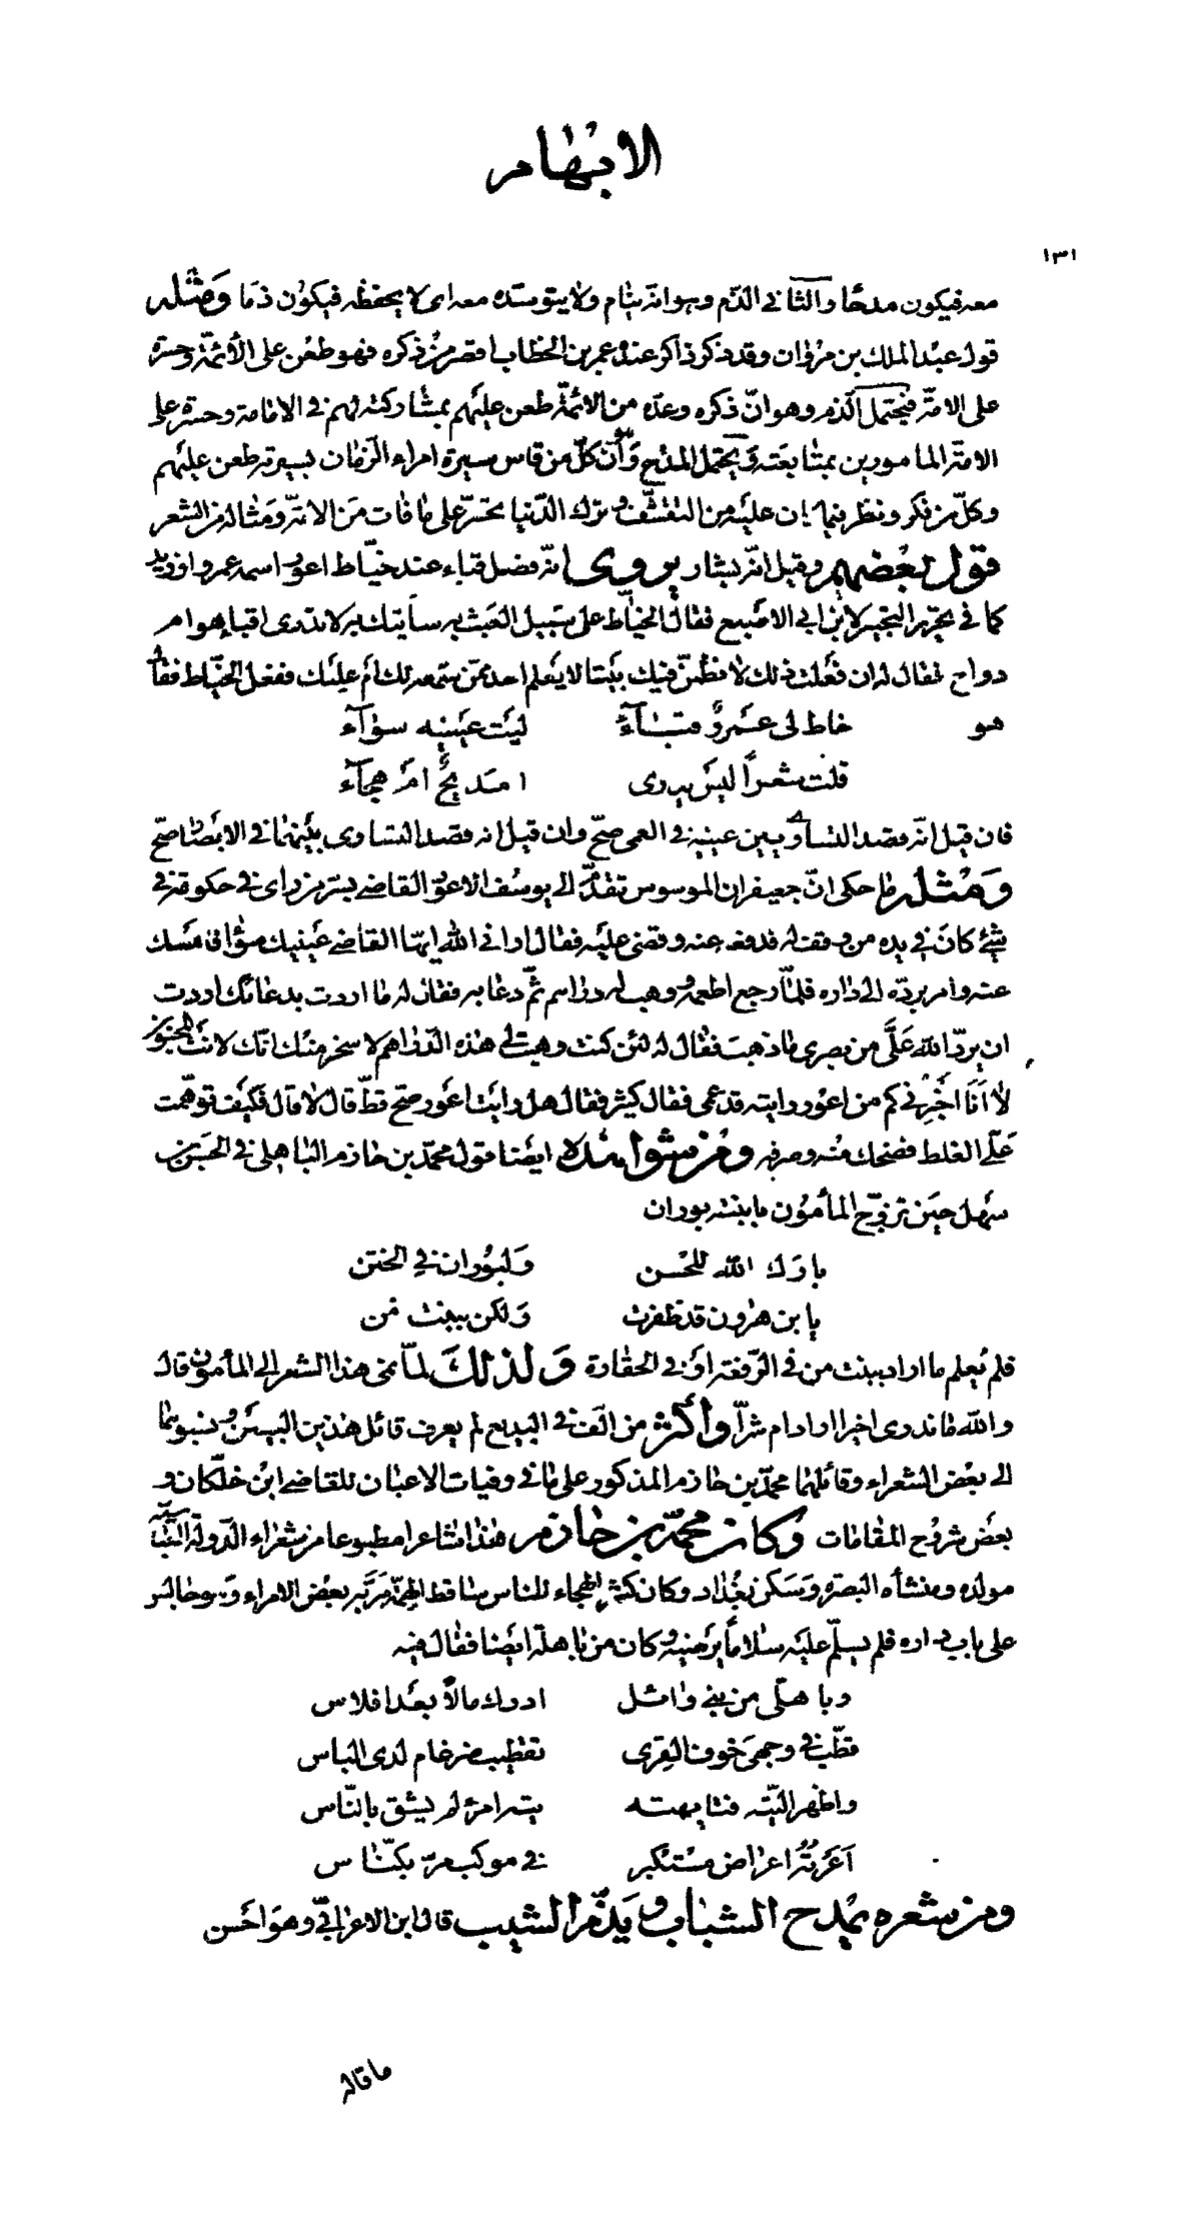 الابهام
١٣١
معه فيكون مدحًا والثاني الذم وهو انه ينام ولا يتوسده معه اى لا يحفظه فيكون ذما ومثله
قول عبد الملك بن مروان وقد ذكر ذاكر عنده عمر بن الخطاب اقصر من ذكره فهو طعن على الأئمة وحسرة
على الامة فيحتمل الذم وهو انّ ذكره وعدّه من الائمة طعن عليهم بمشاركته لهم في الامامة وحسرة على
الامة المامورين بمتابعته ويحتمل المدح وأن كلّ من قاس سيرة امراء الزمان بسيرته طعن عليهم
وكلّ من فكر ونظر فيما كان عليه من التقشّف وترك الدّنيا تحسّر على ما فات من الامة ومثاله من الشعر
قول بعضهم وقيل انّه لبشار يروى انّه فصل قباء عند خيّاط اعور اسمه عمرو او زيد
كما في تحرير التحبير لابن ابي الاصبع فقال الخيّاط على سبيل العبث به سآتيك به لا تدرى اقباء هو ام
دواج فقال له ان فعلت ذلك لانظمنّ فيك بيتا لا يعلم احد ممّن سمعه لك أم عليك ففعل الخيّاط فقال
هو خاط لى عمرو قباءً ليت عينيه سواء
قلت شعرًا ليس يدرى امديحٌ ام هجاء
فان قيل انّه قصد التساوى بين عينيه في العمى صحّ وان قيل انه قصد التساوى بينهما في الابصار صحّ
ومثله ما حكى انّ جعيفران الموسوس تقدّم الى يوسف الاعور القاضي بسر من راى في حكومة في
شئ كان في يده من وقف له فدفعه عنه وقضى عليه فقال ارانى الله ايها القاضي عينيك سواء فامسك
عنه وامر بردّه الى داره فلمّا رجع اطعمه ووهب له دراهم ثمّ دعا به فقال له ما اردت بدعائك اردت
ان يردّ الله علىّ من بصرى ما ذهب فقال له لئن كنت وهبت لى هذه الدراهم لاسخر منك انّك لانت المجنون
لا انا اخبرنى كم من اعور رايته قد عمى فقال كثير فقال هل رايت اعور صحّ قطّ قال لا قال فكيف توهّمت
علىّ الغلط فضحك منه وصرفه ومن شواهده ايضا قول محمّد بن حازم الباهلى في الحسن بن
سهل حين تزوّج المأمون بابنته بوران
بارك الله للحسن ولبوران في الختن
يا بن هرون قد ظفرت ولكن ببنت من
فلم يعلم ما اراد ببنت من في الرّفعة او في الحقارة ولذلك لمّا نمى هذا الشعر الى المأمون قال
والله ما ندرى اخيرا اراد ام شرّا وأكثر من الّف في البديع لم يعرف قائل هذين البيتين ونسبوهما
الى بعض الشعراء وقائلهما محمّد بن حازم المذكور على ما في وفيات الاعيان للقاضي ابن خلّكان و
بعض شروح المقامات وكان محمّد بن حازم هذا شاعرا مطبوعا من شعراء الدّولة العباسيّة
مولده ومنشأه البصرة وسكن بغداد وكان كثير الهجاء للناس ساقط الهمّة مرّ به بعض الامراء وهو جالس
على باب داره فلم يسلّم عليه سلاما يرضيه وكان من باهلة ايضا فقال فيه
وباهلّى من بنى وائل ادرك مالاً بعد افلاس
قطّب في وجهى خوف القرى تقطيب ضرغام لدى الباس
واظهر التّيه فتايهته تيه امرئ لم يشق بالنّاس
أعرته اعراض مستكبر في موكب مرّ بكنّاس
ومن شعره يمدح الشباب ويذمّ الشيب قال ابن الاعرابىّ وهو احسن
ما قاله